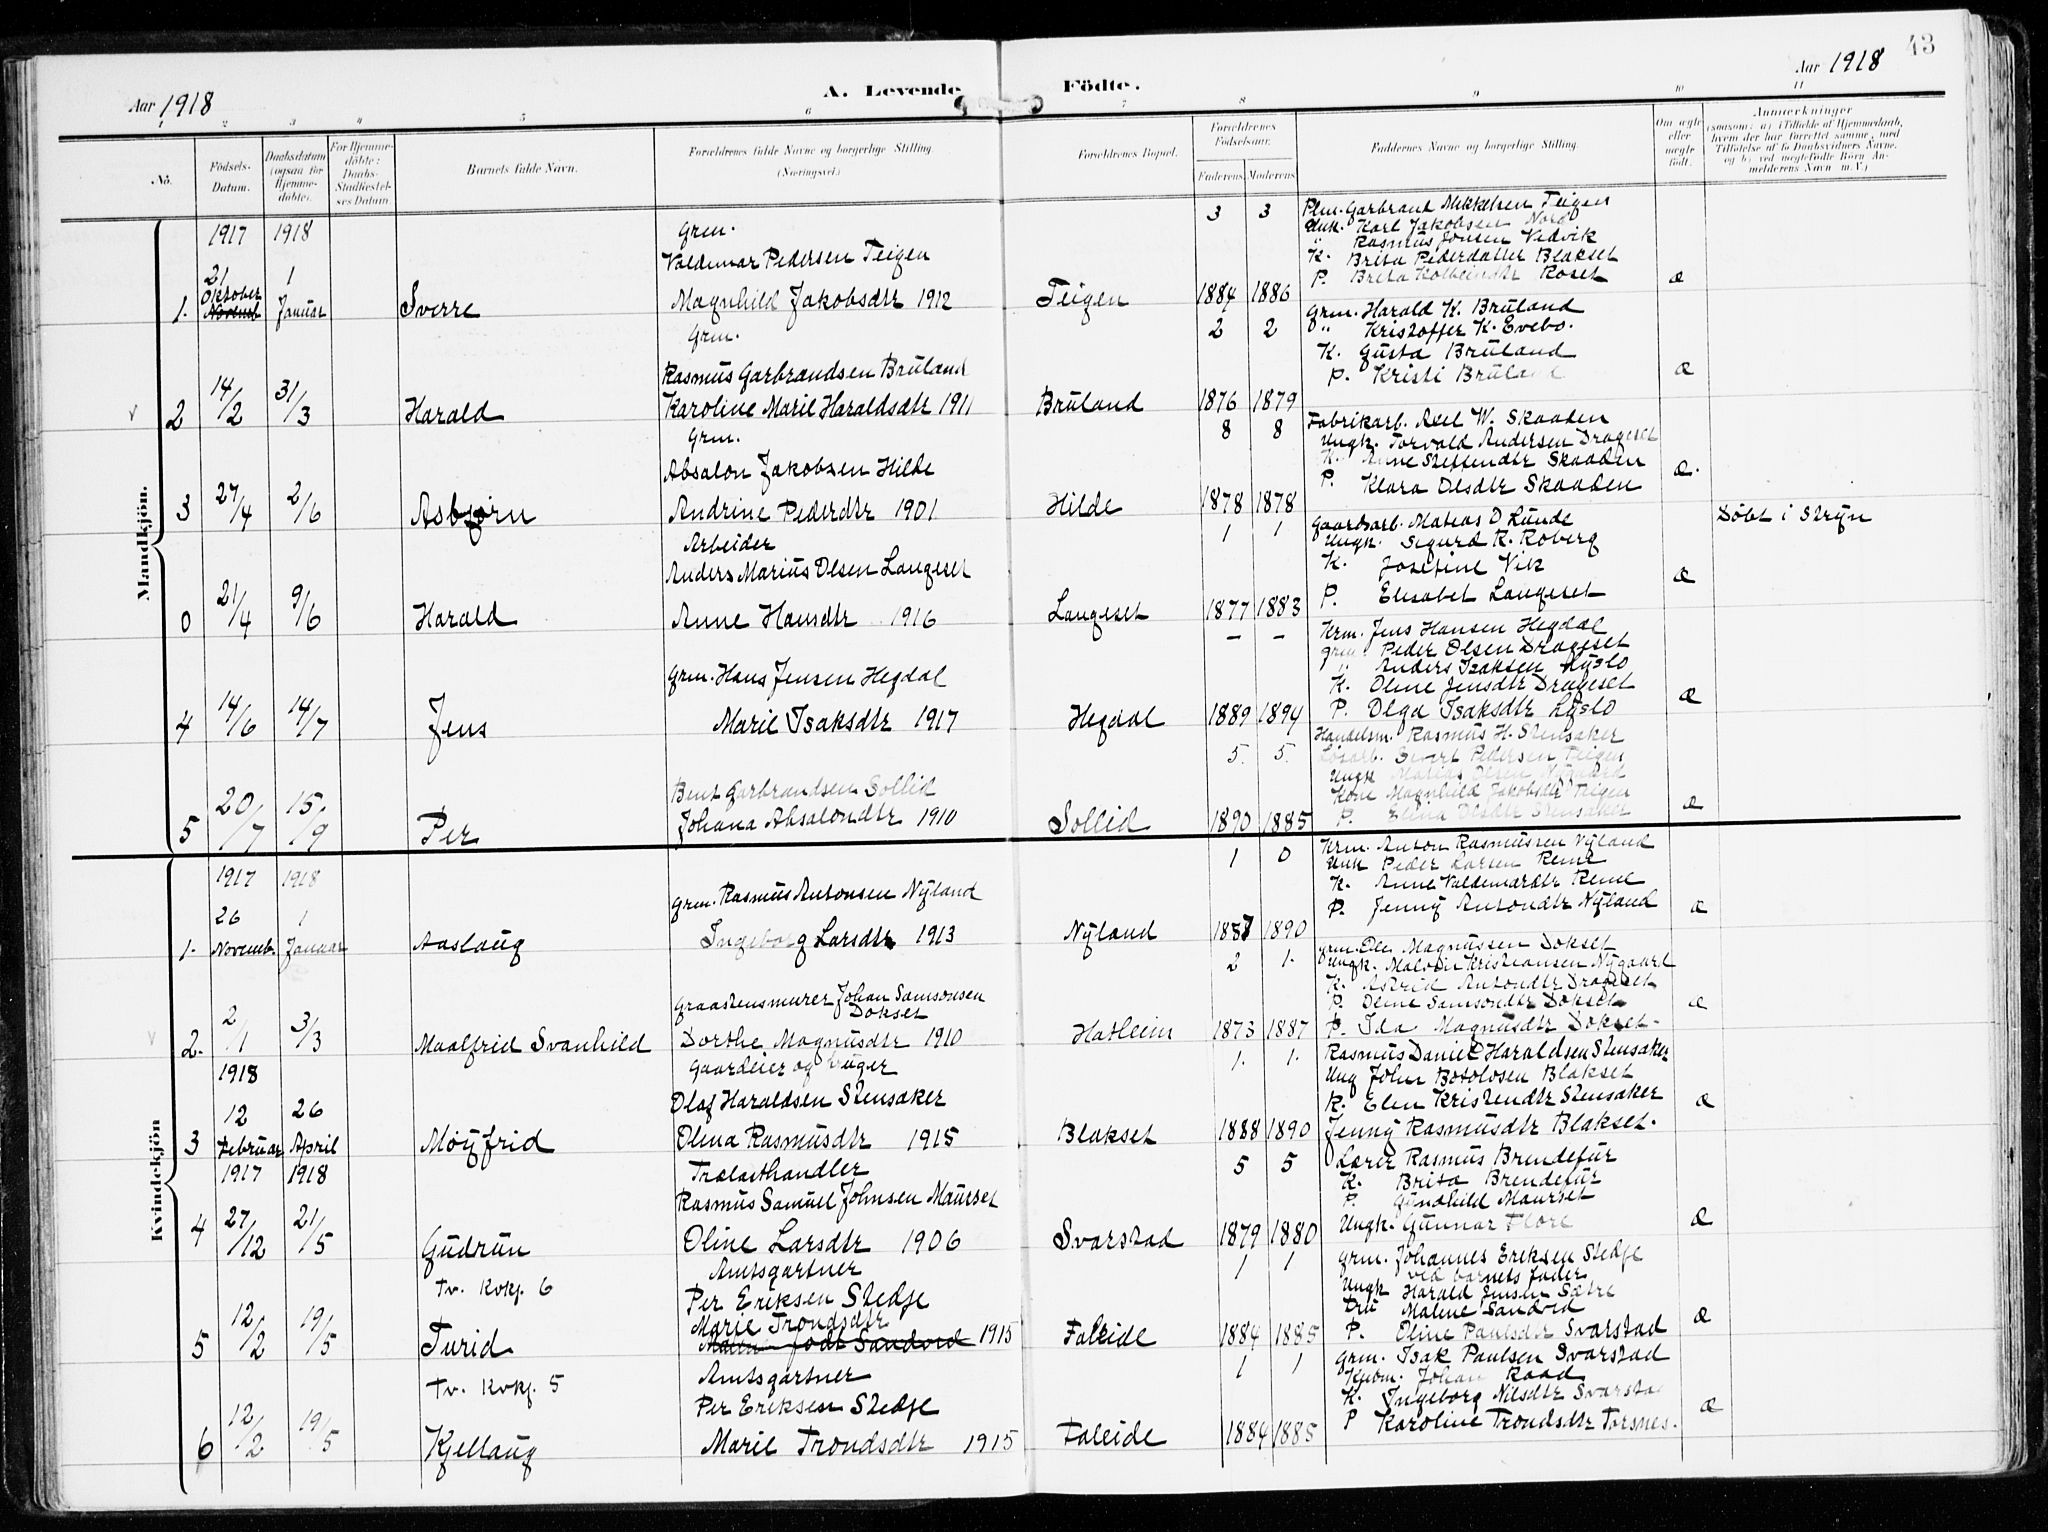 43
Aar 1918
A. Levende
Födte.
Aar 1918
1 2 3 4 5 6 7 8 9 10 11
Nó.
Födsels-
Datum.
Daabsdatum
(ogsaa for
Hjemme-
döbte).
For Hjemme-
döbte:
Daabs-
Stadfæstel-
ses Datum.
Barnets fulde Navn.
Forældrenes fulde Navne og borgerlige Stilling.
(Næringsvei.)
Forældrenes Bopæl.
Forældrenes
Födselsaar.
Faderens. Moderens.
Faddernes Navne og borgerlige Stilling.
Om ægte
eller
uægte
födt.
Anmærkninger
(saasom: a) i Tilfælde af Hjemmedaab,
hvem der har forrettet samme, med
Tilföielse af to Daabsvidners Navne,
og b) ved uægtefödte Börn An-
melderens Navn m. V.)
Mandkjön.
1917 1918
21 1
Oktober
1. Januar
Sverre
Grm.
Valdemar Pedersen Teigen
Magnhild Jakobsdtr 1912
Teigen
3 3
1884 1886
Plm. Garbrand Mikkelsen Teigen
Ungk. Karl Jakobsen Nord
" Rasmus Jonsen Vedvik
K. Brita Pedersdatter Blakset
P. Brita Kolbeindtr Roset
Æ
2 14/2 31/3
Harald
Grm.
Rasmus Garbrandsen Bruland
Karoline Marie Haraldsdtr 1911
Bruland
2 2
1876 1879
Grm. Harald K. Bruland
" Kristoffer K. Evebo.
K. Gusta Bruland
P. Kristi Bruland
Æ
3 27/4 2/6
Asbjørn
Grm.
Absalon Jakobsen Hilde
Andrine Pederdtr 1901
Hilde
8 8
1878 1878
Fabrikarb. Axel W. Skaaden
Ungk. Torvald Andersen Drageset
K. Anne Steffendtr Skaaden
P. Klara Olsdtr Skaaden
Æ.
0 21/4 9/6
Harald
Arbeider
Anders Marius Olsen Langeset
Anne Hansdtr 1916
Langeset
1 1
1877 1883
Gaardsarb. Matias O Lunde
Ungk. Sigurd R. Roberg
K. Josefine Vik
P. Elisabet Langeset
Æ
Döbt i Stryn
4 14/6 14/7
Jens
Grm. Hans Jensen Hegdal
Marie Isaksdtr 1917
Hegdal
- -
1889 1894
Krm. Jens Hansen Hegdal
Grm. Peder Olsen Drageset
" Anders Isaksen Lyslo
K. Oline Jensdtr Drageset
P. Olga Isaksdtr Lyslo
Æ
5 20/7 15/9
Per
Bent Garbrandsen Sollid
Johana Absalondtr 1910
Sollid
5. 5.
1890 1885
Handelsm. Rasmus H. Stensaker
Løsarb. Sivert Pedersen Teigen
Ungk Matias Olsen Nygaard
Kone Magnhild Jakobsdtr Teigen
P. Elina Olsdtr Stensaker
Æ
Kvindekjön
1917 1918
26 1
1. Novemb. Januar
Aaslaug
Grm. Rasmus Antonsen Nyland
Ingeborg Larsdtr 1913
Nyland
1 0
1887 1890
Krm. Anton Rasmussen Nyland
Ungk Peder Larsen Reme
K. Anne Valdemardtr Reme
P. Jenny Antondtr Nyland
Æ
2. 2/1 3/3
Maalfrid Svanhild
Graastensmurer Johan Samsonsen
Dokset
Dorthe Magnusdtr 1910
Hatleim
2 1.
1873 1887
Grm. Ole Magnussen Dokset
Ungk. Malvin Kristiansen Nygaard
K. Astrid Antondtr Drageset
P. Oline Samsondtr Dokset
P. Ida Magnusdtr Dokset.
Æ
1918
12 26
3 Februar April
Møyfrid
Gaardeier og bruger
Olaf Haraldsen Stensaker
Olina Rasmusdtr 1915
Blakset
1. 1.
1888 1890
Rasmus Daniel Haraldsen Stensaker
Ung John Botolvsen Blakset
K. Elen Kristendtr Stensaker
Jenny Rasmusdtr Blakset.
Æ
1917 1918
4 27/12 21/5
Gudrun
Trælasthandler
Rasmus Samuel Johnsen Maurset
Oline Larsdtr 1906
Svarstad
5 5
1879 1880
Lærer Rasmus Brendefur
K. Brita Brendefur
P. Gundhild Maurset
Ungk. Gunnar Flore
Æ
Tv. Kvkj. 6
5 12/2 19/5
Turid
Amtsgartner
Per Eriksen Stedje
Marie Trondsdtr
født Sandvid 1915
Faleide
1 1
1884 1885
Grm. Johannes Eriksen Stedje
ved barnets fader
Ungk Harald Jensen Sætre
Fru Malene Sandvid
P. Oline Paulsdtr Svarstad
Æ
Tv. Kvkj. 5
6 12/2 19/5
Kjellaug
Amtsgartner
Per Eriksen Stedje
Marie Trondsdtr 1915
Faleide
1 1
1884 1885
Grm. Isak Paulsen Svarstad
Johan Raad
K. Ingeborg Nilsdtr Svarstad
P Karoline Trondsdtr Torsnes.
Æ